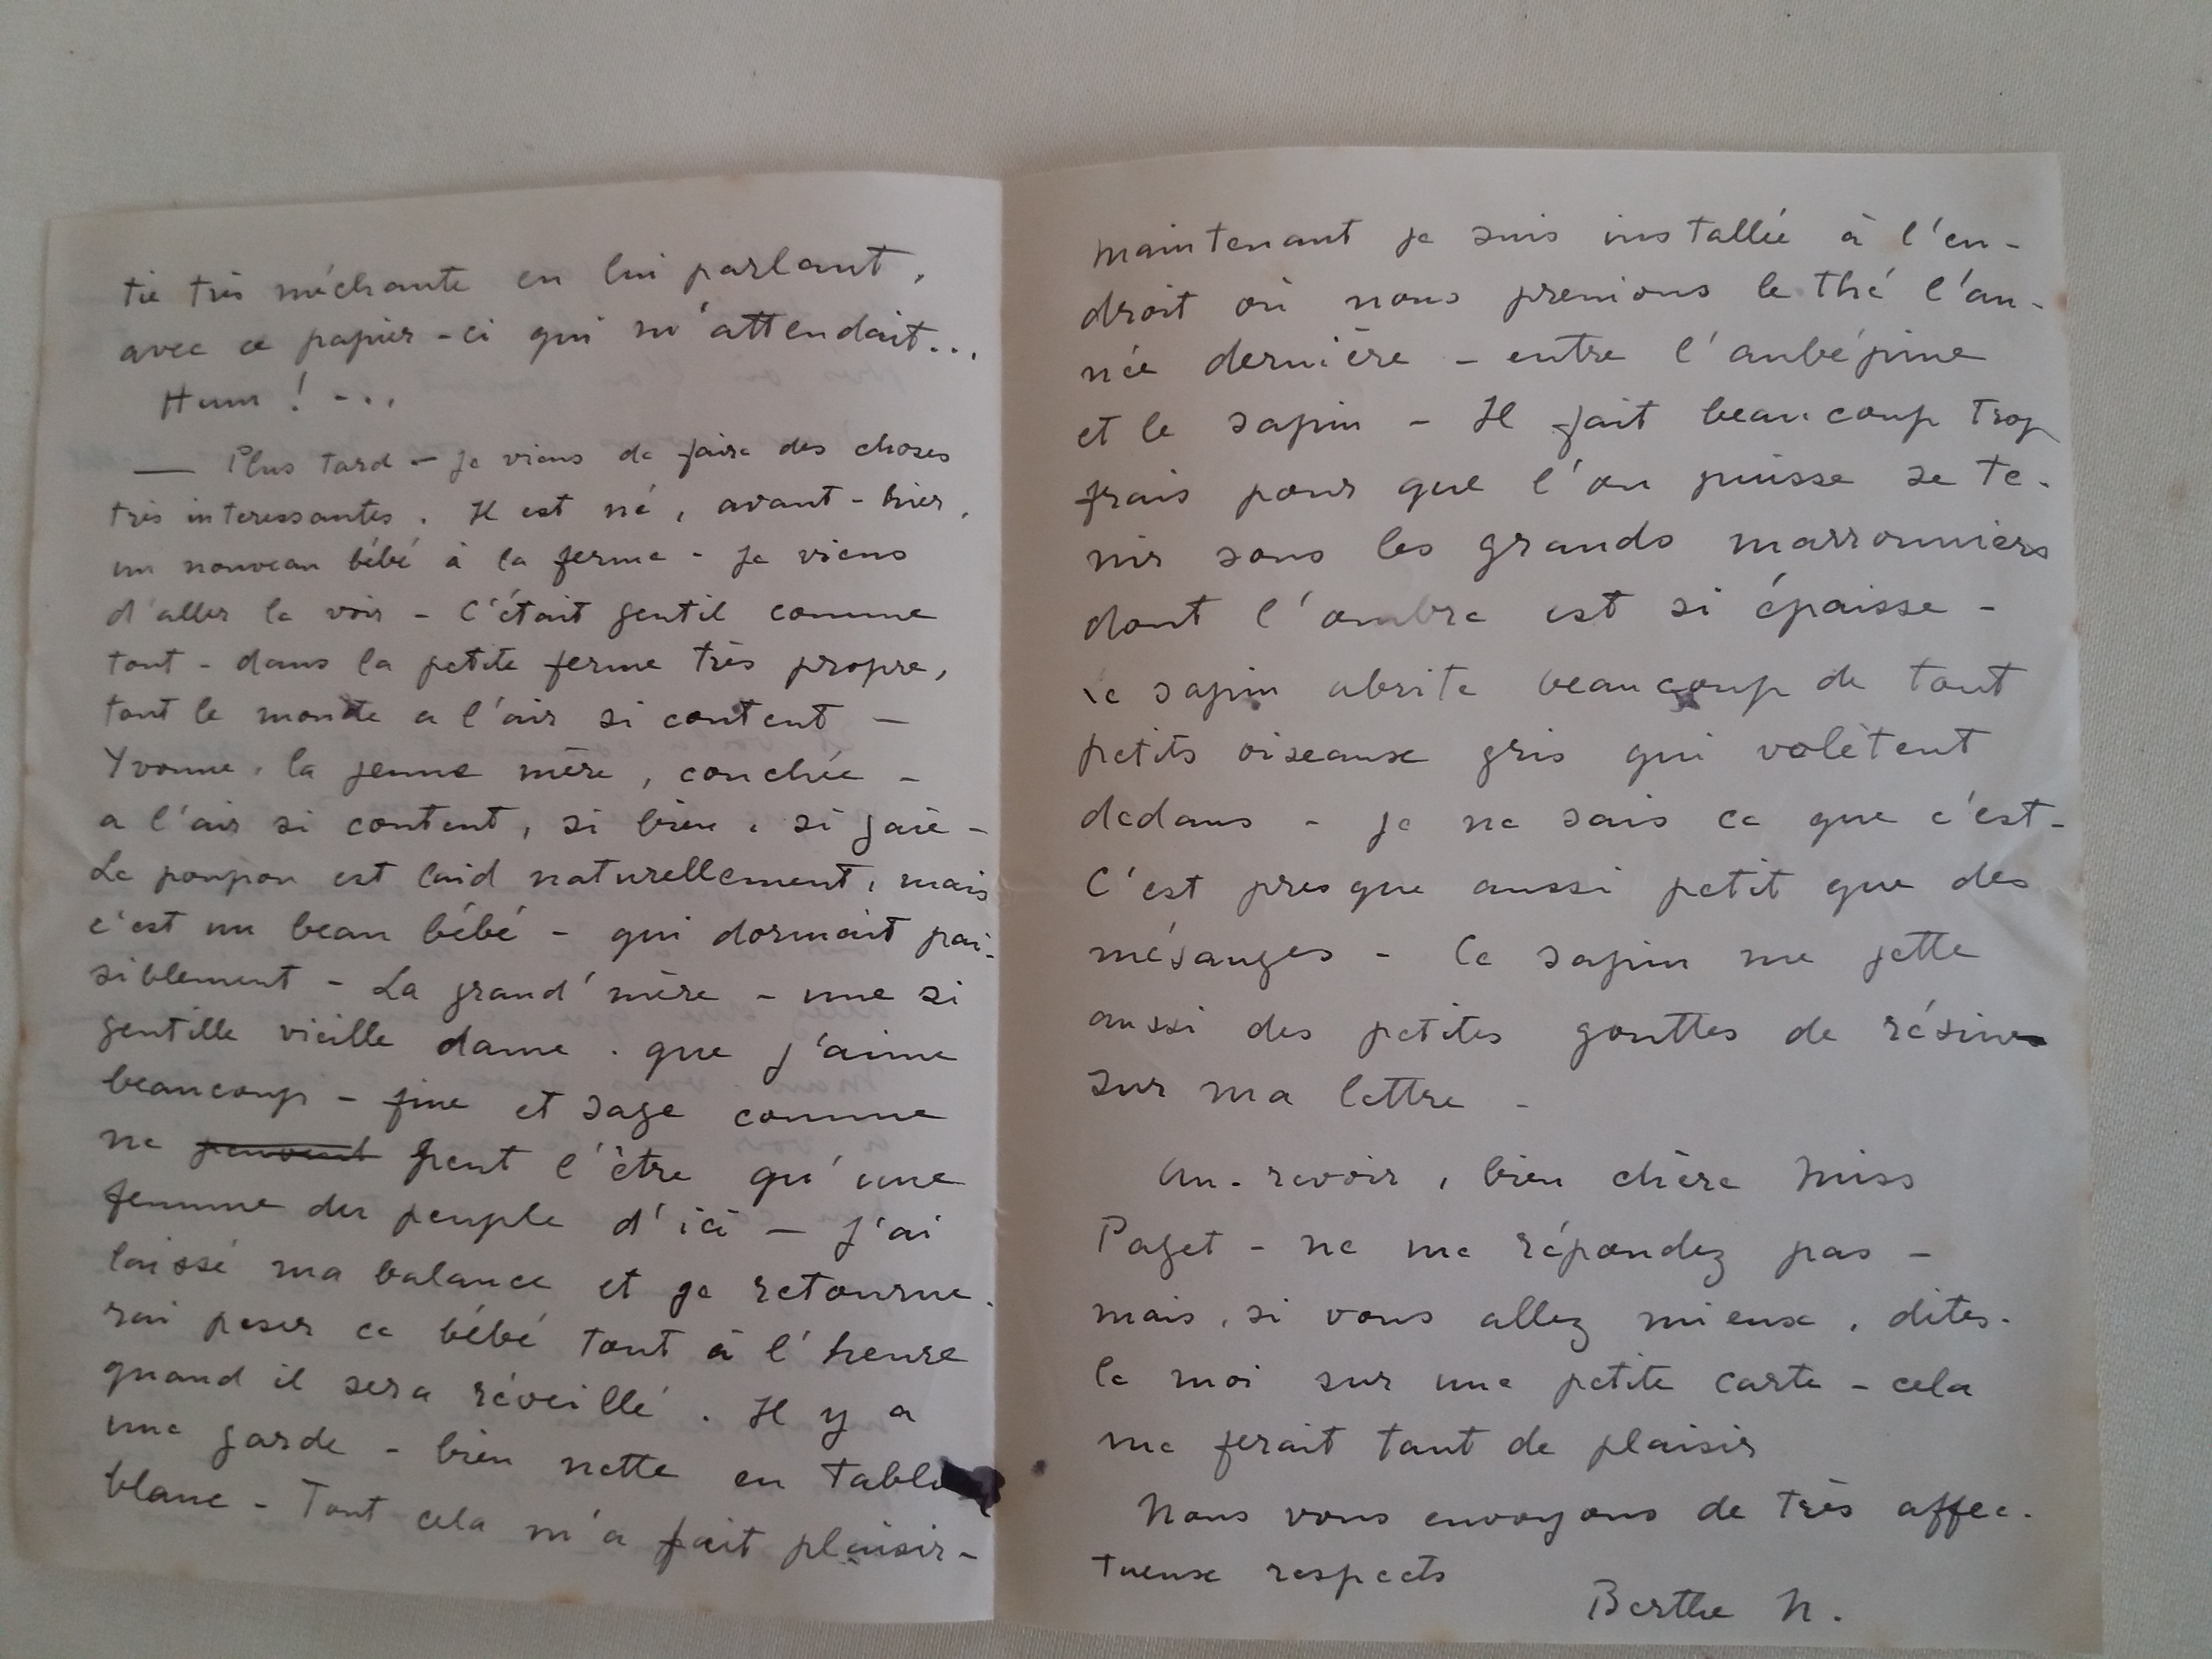 tie très méchante en lui parlant,
avec ce papier-ci qui m'attendait...
Hum ! ...
— Plus tard — Je viens de faire des choses
très interessantes. Il est né, avant-hier,
un nouveau bébé à la ferme - Je viens
d'aller le voir - C'était gentil comme
tout - dans la petite ferme très propre,
tout le monde a l'air si content —
Yvonne, la jeune mère, couchée -
a l'air si content, si bien, si gaie -
Le poupon est laid naturellement, mais
c'est un beau bébé - qui dormait pai-
siblement - La grand'mère - une si
gentille vieille dame. que j'aime
beaucoup - fine et sage comme
ne peuvent peut l'être qu'une
femme du peuple d'ici — J'ai
laissé ma balance et je retourne-
rai peser ce bébé tout à l'heure
quand il sera réveillé. Il y a
une garde - bien nette en
blanc - Tout cela m'a fait plaisir -
Maintenant je suis installée à l'en-
droit où nous prenions le thé l'an-
née dernière - entre l'aubépine
et le sapin - Il fait beaucoup trop
frais pour que l'on puisse se te-
nir sous les grands marronniers
dont l'ombre est si épaisse -
le sapin abrite beaucoup de tout
petits oiseaux gris qui volètent
dedans - Je ne sais ce que c'est -
C'est presque aussi petit que des
mésanges - Ce sapin me jette
aussi des petites gouttes de résine
sur ma lettre -
Au-revoir, bien chère Miss
Paget - ne me répondez pas -
mais, si vous allez mieux, dites-
le moi sur une petite carte - cela
me ferait tant de plaisir
Nous vous envoyons de très affec-
tueux respects
Berthe N.